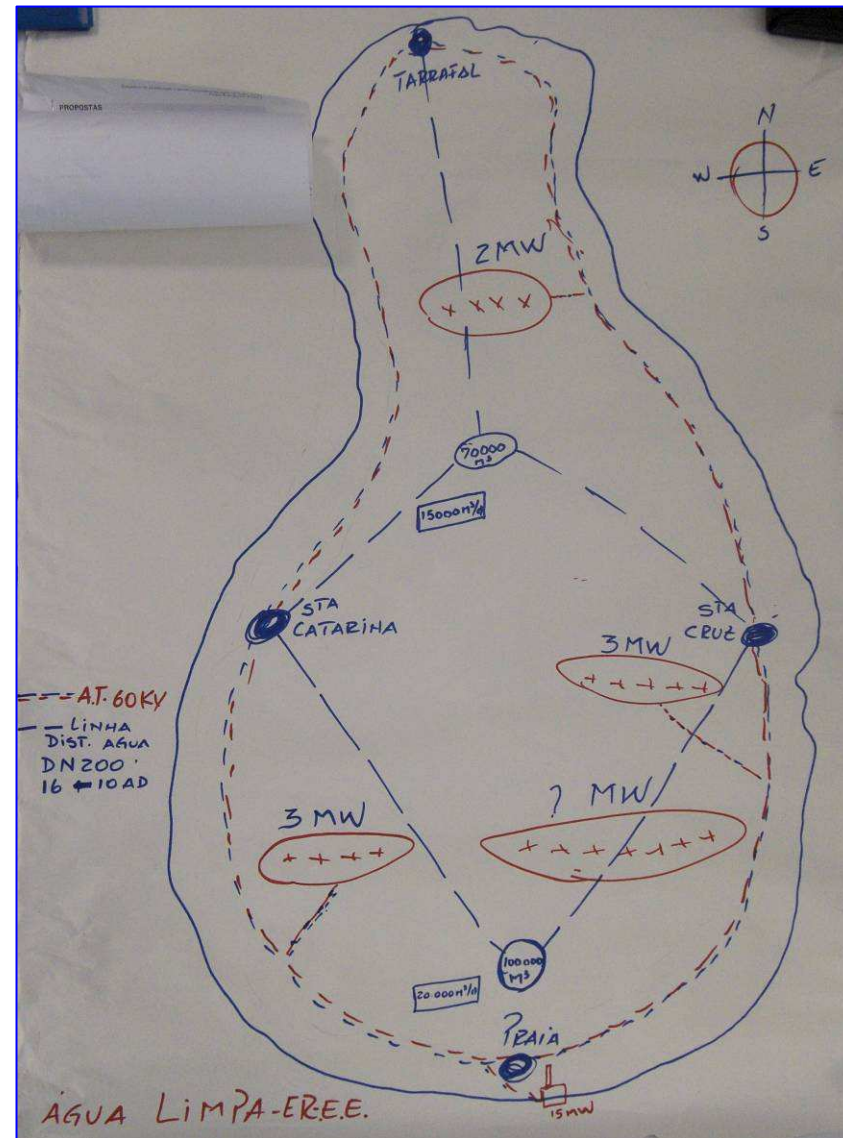 PROPOSTAS
TARRAFAL
N
W E
S
2 MW
70000
M³
15000 m³/d
STA
CATARINA
STA
CRUZ
3 MW
A.T. 60KV
LINHA
DIST. AGUA
DN200
16 10 AD
? MW
3 MW
100000
M³
20.000 m³/d
PRAIA
15MW
AGUA LIMPA-ER.E.E.